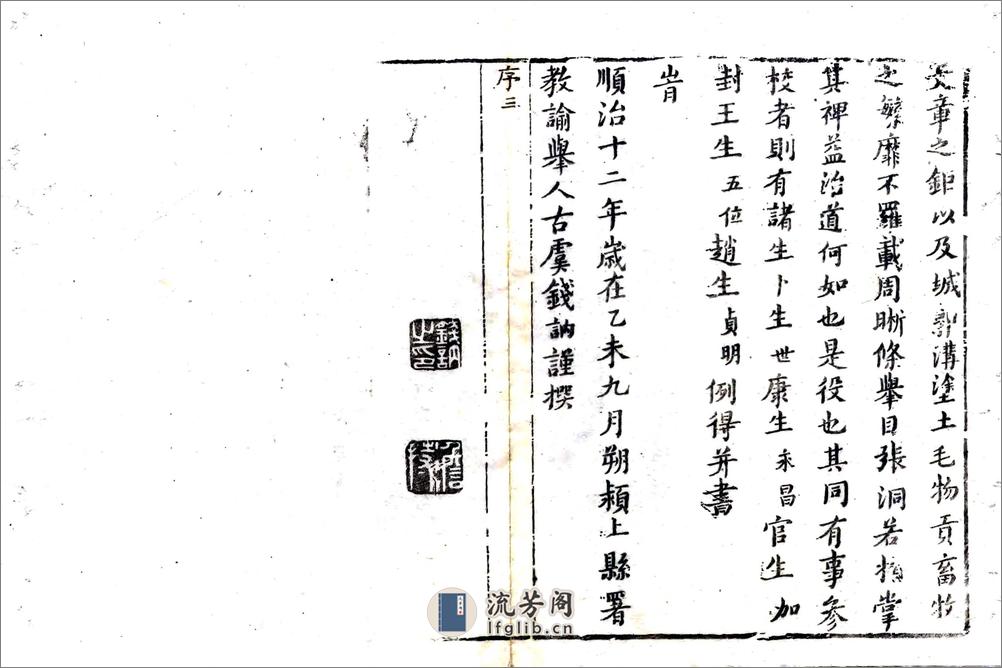 文章之鉅以及城郭溝塗土毛物貢畜牧
之繁靡不羅載周晰條舉目張洞若指掌
其裨益治道何如也是役也其同有事參
校者則有諸生卜生世康生永昌官生加
封王生五位趙生貞明例得并書
旹
順治十二年歲在乙未九月朔潁上縣署
教諭舉人古虞錢訥謹撰
序三
錢訥之印
流芳阁
lfglib.cn